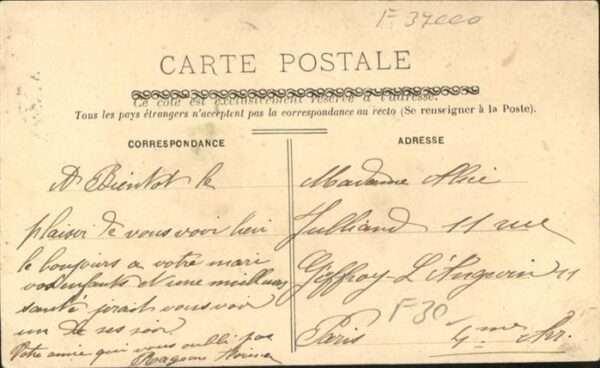 F 37000
CARTE POSTALE
Ce côté est exclusivement réservé à l'adresse.
Tous les pays étrangers n'acceptent pas la correspondance au recto (Se renseigner à la Poste).
CORRESPONDANCE
A Bientot le
plaisir de vous voir bien
le bonjours a votre mari
vos enfants d'une meilleur
santé jirait vous voir
un de ses soir
Votre amie qui vous oubli pas
ADRESSE
Madame Alice
Julliand 11 rue
Giffroy-L'Angevin 11
F 30
Paris 4eme Arr.